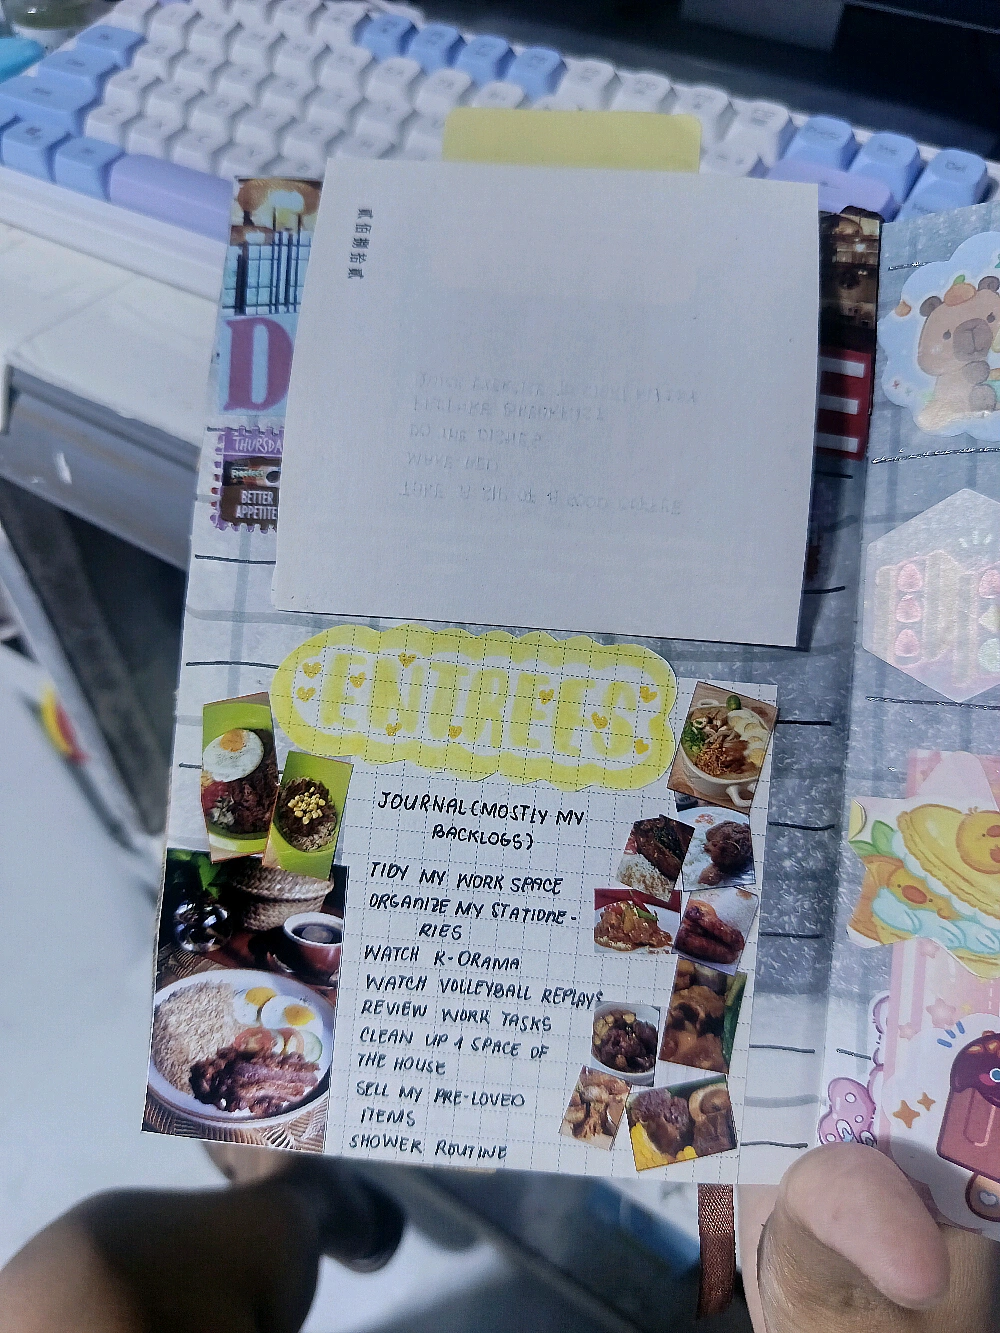 貳佰捌拾貳
D
E
THURSDA
BETTER
APPETITE
ENTREES
JOURNAL (MOSTLY MY
BACKLOGS)
TIDY MY WORK SPACE
ORGANIZE MY STATIONE-
RIES
WATCH K-DRAMA
WATCH VOLLEYBALL REPLAYS
REVIEW WORK TASKS
CLEAN UP 1 SPACE OF
THE HOUSE
SELL MY PRE-LOVED
ITEMS
SHOWER ROUTINE